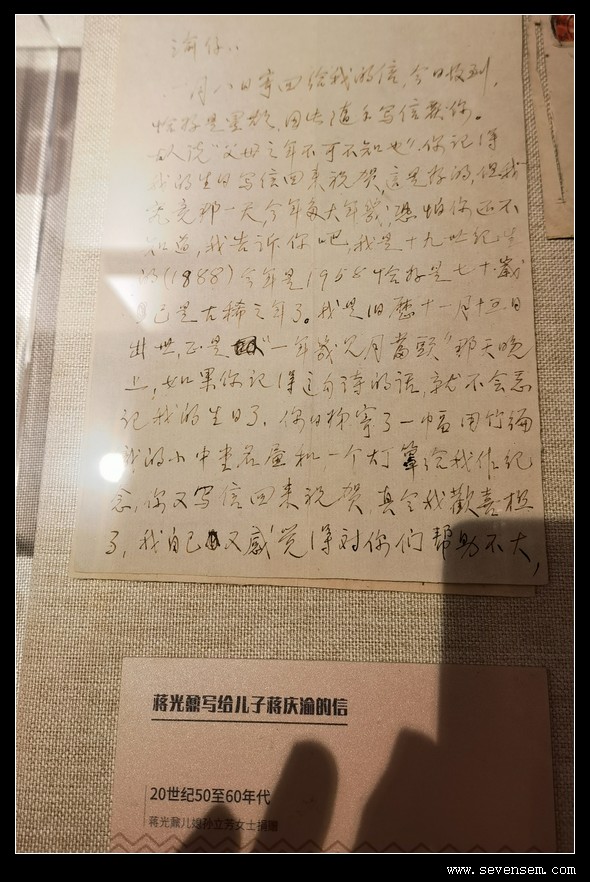 渝仔：
一月八日寄回给我的信，今日收到，
恰好是星期，因此随手写信覆你。
古人说“父母之年不可不知也”，你记得
我的生日写信回来祝贺，这是好的，但我
究竟那一天，今年多大年岁，恐怕你还不
知道，我告诉你吧，我是十九世纪生
的(1888)今年是1958恰好是七十岁
已是古稀之年了。我是旧历十一月十五日
出世，正是“一年几见月当头”那天晚
上，如果你记得这句诗的话，就不会忘
记我的生日了。你日柳寄了一幅用竹编
成的小中堂花画和一个灯罩给我作纪
念，你又写信回来祝贺，真令我歡喜极
了，我自己又感觉得对你们帮助不大，
蒋光鼐写给儿子蒋庆渝的信
20世纪50至60年代
蒋光鼐儿媳孙立芳女士捐赠
www.sevensem.com